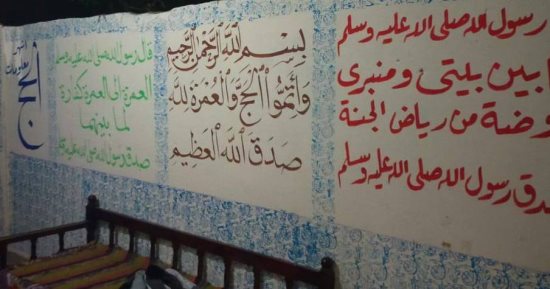 رسول الله صلى الله عليه وسلم
بين بيتى ومنبرى
روضة من رياض الجنة
صدق رسول الله صلى الله عليه وسلم
بسم الله الرحمن الرحيم
وأتموا الحج والعمرة لله
صدق الله العظيم
قال رسول الله صلى الله عليه وسلم
العمرة الى العمرة كفارة
لما بينهما
صدق رسول الله صلى الله عليه وسلم
الحج
أشهر
معلومات